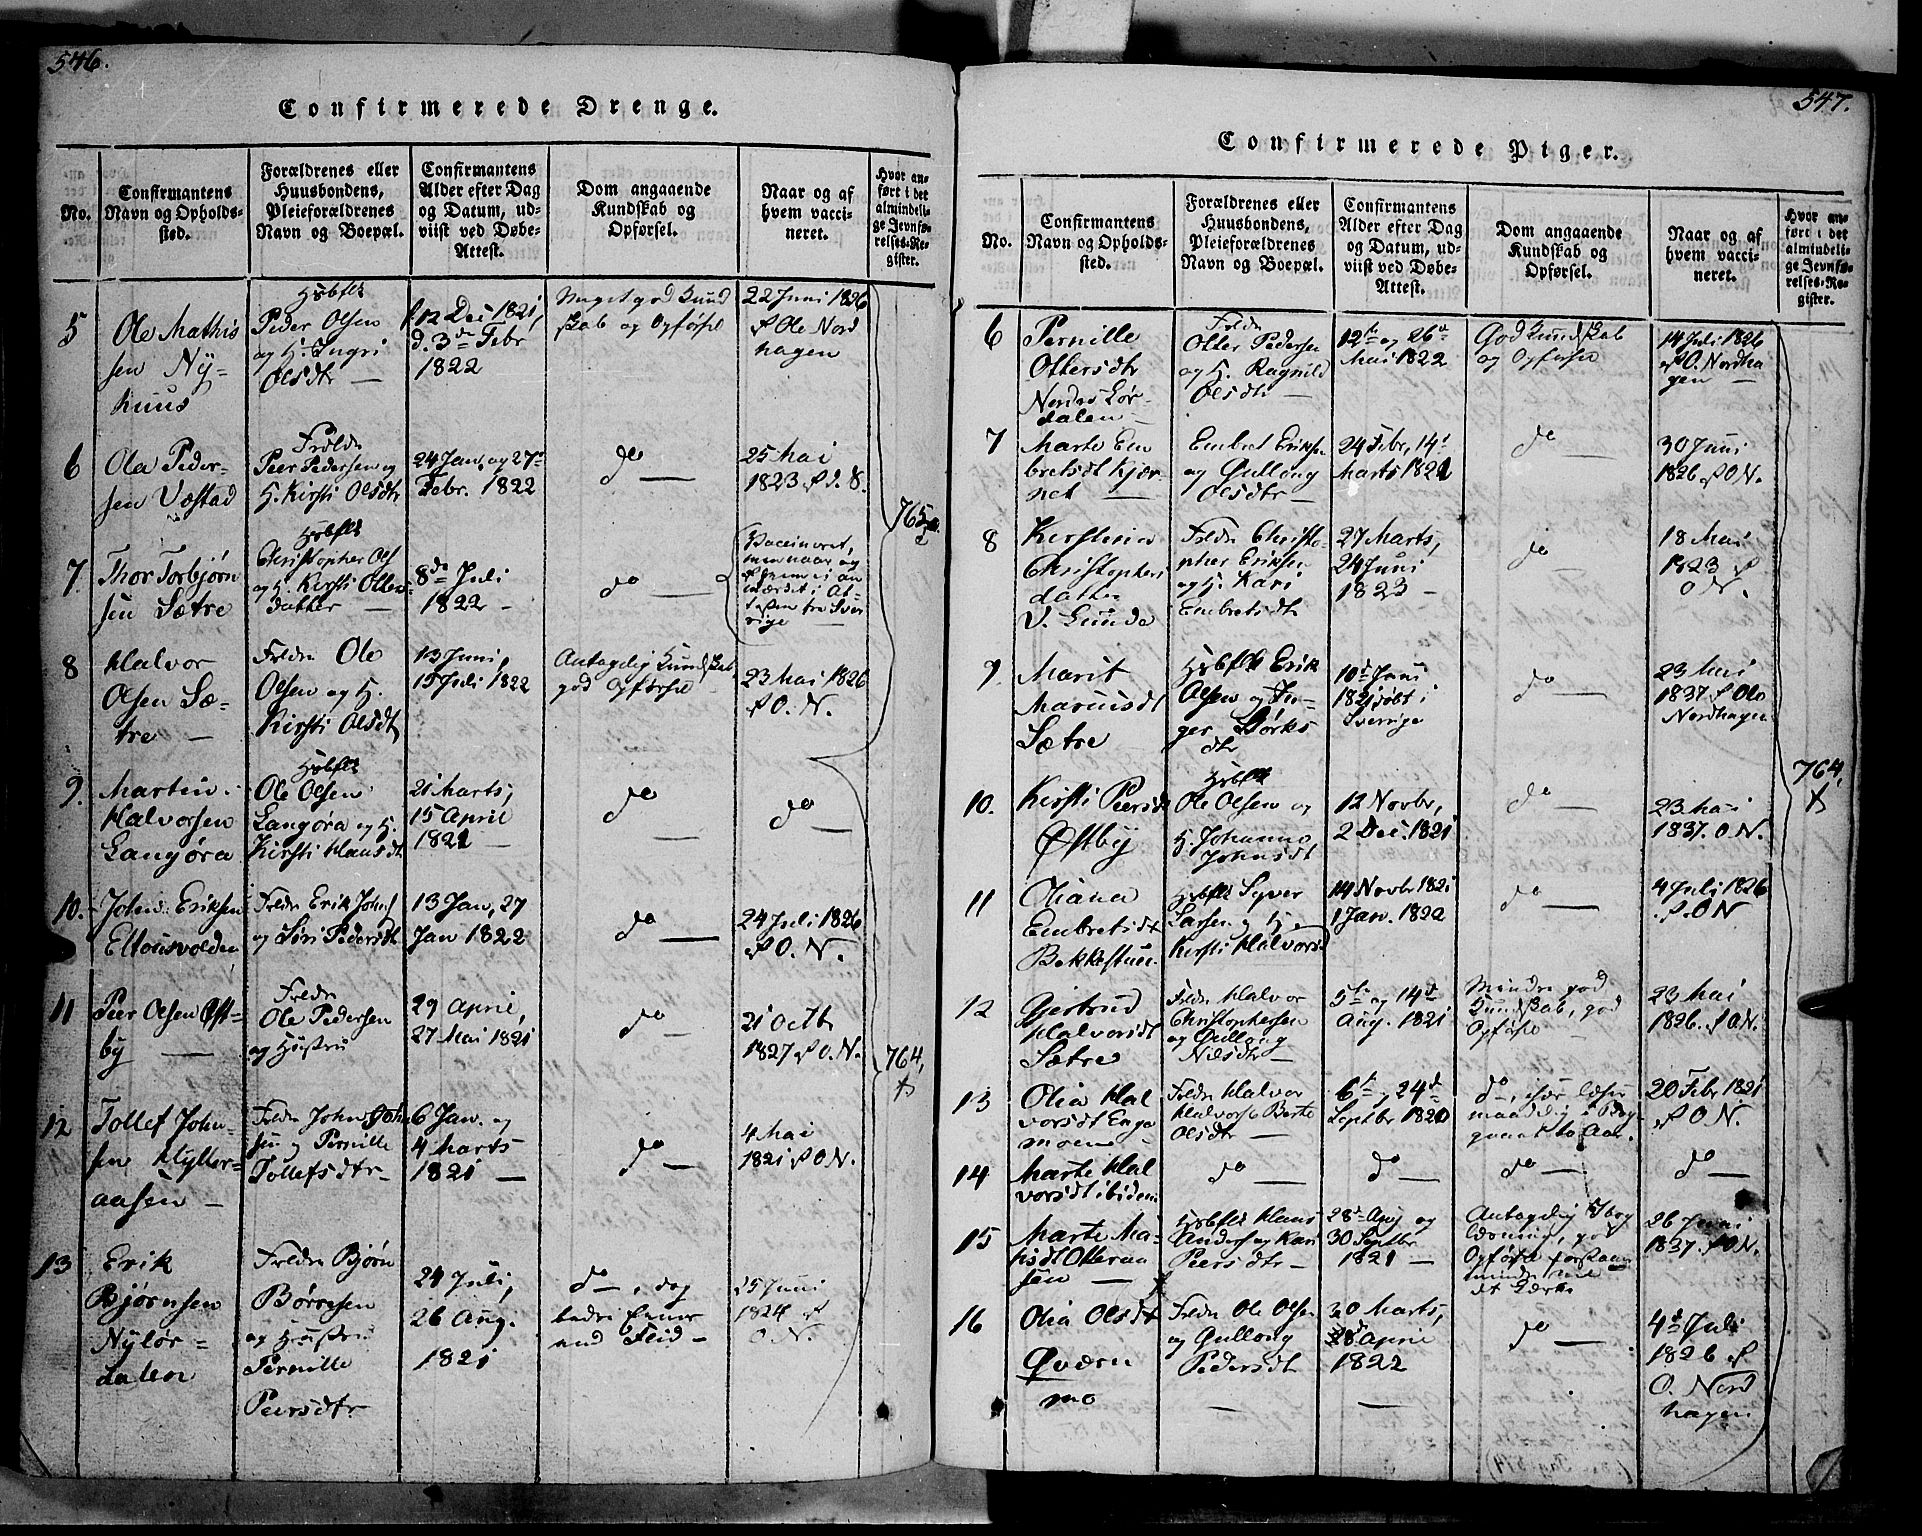 546.
Confirmerede Drenge.
No.
Confirmantens
Navn og Opholds-
sted.
Forældrenes eller
Huusbondens,
Pleieforældrenes
Navn og Boepæl.
Confirmantens
Alder efter Dag
og Datum, ud-
viist ved Døbe-
Attest.
Dom angaaende
Kundskab og
Opførsel.
Naar og af
hvem vacci-
neret.
Hvor an-
ført i det
almindeli-
ge Jevnfø-
relses-Re-
gister.
5
Ole Mathis
sen Ny-
huus
Huusfldr
Peder Olsen
og H. Ingri
Olsdtr —
12 Dec 1821,
d. 3die Febr
1822
Meget god Kund
skab og Opførsel
22 Juni 1826
af Ole Nord
hagen
6
Ola Peder-
sen Væstad
Frldre
Peer Pedersen og
H. Kirsti Olsdtr
24 Jan. og 27de
Febr. 1822
do —
25 Mai
1823 af d. S.
7.
Thor Torbjørn
sen Sætre
Christopher Ols
og H. Kirsti Olles
datter —
8de Juli
1822 —
do —
Vaccineret,
men naar og
af hvem ei an
mærket i At-
testen fra Sver
rige —
765
8
Halvor
Olsen Sæ-
tre —
Frldre Ole
Olsen og H.
Kirsti Olsdtr
13 Juni,
15 Juli 1822
Antagelig Kundskab,
god Opførsel
23 Mai 1826
af O. N.
9.
Martin
Halvorsen
Langøra
Ole Olsen
Langøra og H.
Kirsti Hansdtr
21 Marts,
15 April
1821 —
do —
do —
10.
John Eriksen
Eltousvolden
Frldre Erik Johns
og Siri Pedersdtr
13 Jan, 27
Jan 1822
do —
24 Juli 1826
af O. N.
11
Peer Olsen Øst-
by —
Frldre
Ole Pedersen
og Hustru
29 April,
27 Mai 1821
do —
21 Octb
1827 af O. N.
764,
12
Tollef John-
sen Hyller-
aasen —
Frldre John John
sen og Pernille
Tollefsdtr —
6 Jan. og
4 Marts
1821 —
do —
4 Mai
1821 af O N.
13
Erik
Bjørnsen
Nylør-
dalen
Frldre Bjørn
Børresen
og Hustru
Pernille
Peersdtr
24 Juli,
26 Aug.
1821
do —, dog
bedre Evner
end Flid —
25 Juni
1824 af
O. N.
547.
Confirmerede Piger.
No.
Confirmantens
Navn og Opholds-
sted.
Forældrenes eller
Huusbondens,
Pleieforældrenes
Navn og Boepæl.
Confirmantens
Alder efter Dag
og Datum, ud-
viist ved Døbe-
Attest.
Dom angaaende
Kundskab og
Opførsel.
Naar og af
hvem vacci-
neret.
Hvor an-
ført i det
almindeli-
ge Jevnfø-
relses-Re-
gister.
6
Pernille
Ottersdtr
Nordre Lør-
dalen —
Frldre
Otter Pedersen
og H. Ragnild
Olsdtr —
12te og 26de
Mai 1822
God Kundskab
og Opførsel
14 Juli 1826
af O. Nordha
gen —
7
Marte Em
bretsdt Kjær
net —
Embret Eriksen
og Gullong
Olsdtr —
24 Febr, 14de
Marts 1821
do —
30 Juni
1826 af O N.
8
Kirstina
Christophers
datter
V. Lunde
Frldre Christo-
pher Eriksen
og H. Kari
Embretsdtr
27 Marts,
24 Juni
1823 —
do —
18 Mai
1823 af
O N.
9.
Marit
Mariusdt
Sætre
Erik
Olsen og In-
ger Børks
dtr
10de Juni
1821 døbt i
Sverrige
do —
23 Mai
1837 af Ole
Nordhagen
10.
Kirsti Peersdt
Østby
Ole Olsen og
H. Johanna
Johnsdt
12 Novbr,
2 Dec. 1821
do —
23 Mai
1837. O. N.
764,
11
Oliana
Embretsdt
Bekkestuen
Syver
Larsen og H.
Kirsti Halvorsd
14 Novbr 1821
1 Jan. 1822
do —
4 Juli 1826
af O N
12
Gjertrud
Halvorsdt
Sætre
Frldre Halvor
Christophersen
og Gullong
Nilsdtr —
5te og 14de
Aug. 1821
Mindre god
Kundskab, god
Opførsel
23 Mai
1826. af O N.
13
Olia Hal
vorsdt Enge
moen —
Frldre Halvor
Halvors Berte
Olsdtr —
6te og 24de
Septbr 1820
20 Febr 1821
af O N.
14
Marte Hal
vorsdt ibidem
do —
do —
do —
do —
15
Marte Ma-
Otteraa
sen —
Hans
Anders og Kari
Peersdtr —
28de Aug og
30 Septbr
1821 —
Antagelig
26 Juni
1837. af O N.
16
Olia Olsdt
Qværn
mo
Frldre Ole Olsen
og Gullong
Pedersdt
—
30 Marts,
28de April
1822
—
do —
4de Juli
1826 af
O. Nord
hagen